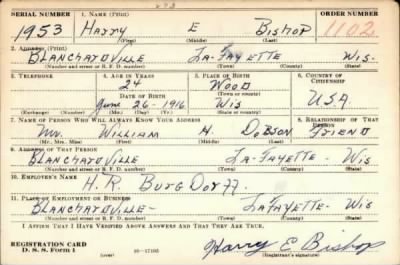 SERIAL NUMBER 1. NAME (Print) ORDER NUMBER
1953 HARRY E BISHOP 1102
(First) (Middle) (Last)
2. ADDRESS (Print)
BLANCHARDVILLE LA-FAYETTE WIS.
(Number and street or R. F. D. number) (Town) (County) (State)
3. TELEPHONE 4. AGE IN YEARS 5. PLACE OF BIRTH 6. COUNTRY OF CITIZENSHIP
24 WOOD
DATE OF BIRTH (Town or county)
June 26-1916 WIS USA.
(Exchange) (Number) (Mo.) (Day) (Yr.) (State or country)
7. NAME OF PERSON WHO WILL ALWAYS KNOW YOUR ADDRESS 8. RELATIONSHIP OF THAT PERSON
MR. WILLIAM H. DOBSON FRIEND
(Mr., Mrs., Miss) (First) (Middle) (Last)
9. ADDRESS OF THAT PERSON
BLANCHARDVILLE LA-FAYETTE- WIS
(Number and street or R. F. D. number) (Town) (County) (State)
10. EMPLOYER'S NAME
H. R. BURGDORFF.
11. PLACE OF EMPLOYMENT OR BUSINESS
BLANCHARDVILLE- LAFAYETTE- WIS
(Number and street or R. F. D. number) (Town) (County) (State)
I AFFIRM THAT I HAVE VERIFIED ABOVE ANSWERS AND THAT THEY ARE TRUE.
REGISTRATION CARD
D. S. S. Form 1 (over) Harry E Bishop
(Registrant's signature)